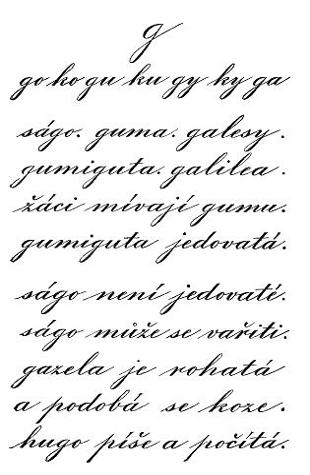 g
go ko gu ku gy ky ga
ságo. guma. galesy.
gumiguta. galilea.
žáci mívají gumu.
gumiguta jedovatá.
ságo není jedovaté.
ságo může se vařiti.
gazela je rohatá
a podobá se koze.
hugo píše a počítá.